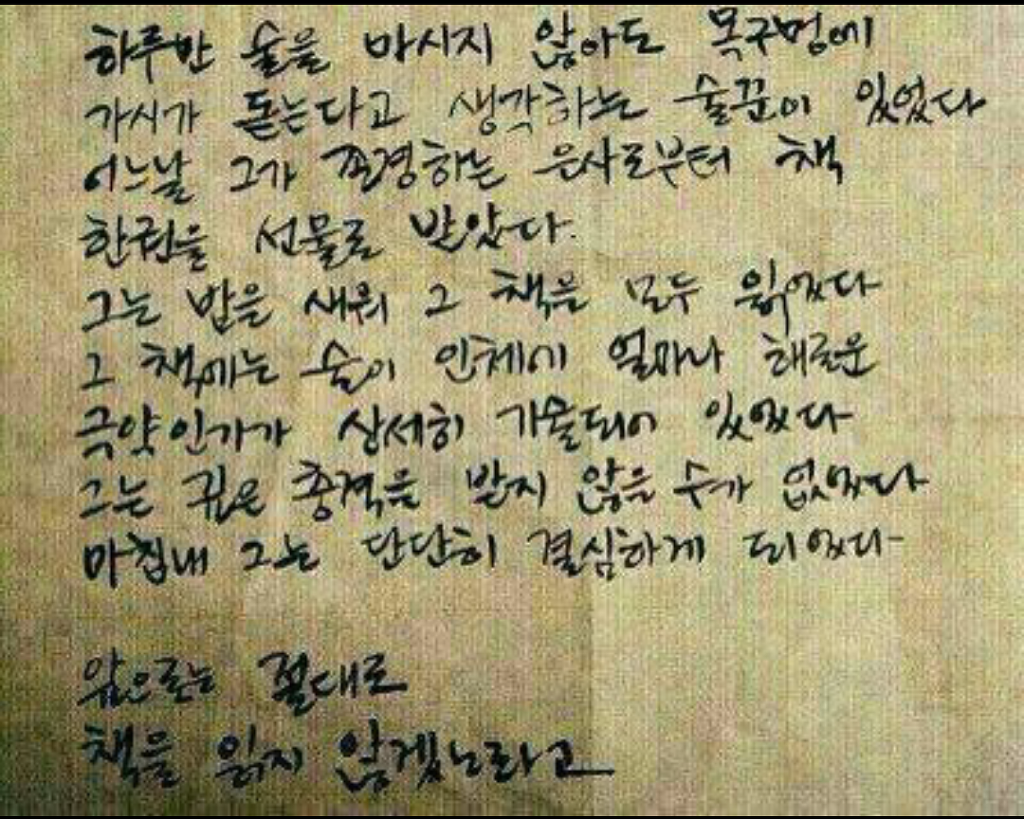 하루만 술을 마시지 않아도 목구멍에
가시가 돋는다고 생각하는 술꾼이 있었다
어느날 그가 존경하는 은사로부터 책
한권을 선물로 받았다.
그는 밤을 새워 그 책을 모두 읽었다
그 책에는 술이 인체에 얼마나 해로운
극약인가가 상세히 기술되어 있었다
그는 깊은 충격을 받지 않을 수가 없었다
마침내 그는 단단히 결심하게 되었다
앞으로는 절대로
책을 읽지 않겠노라고